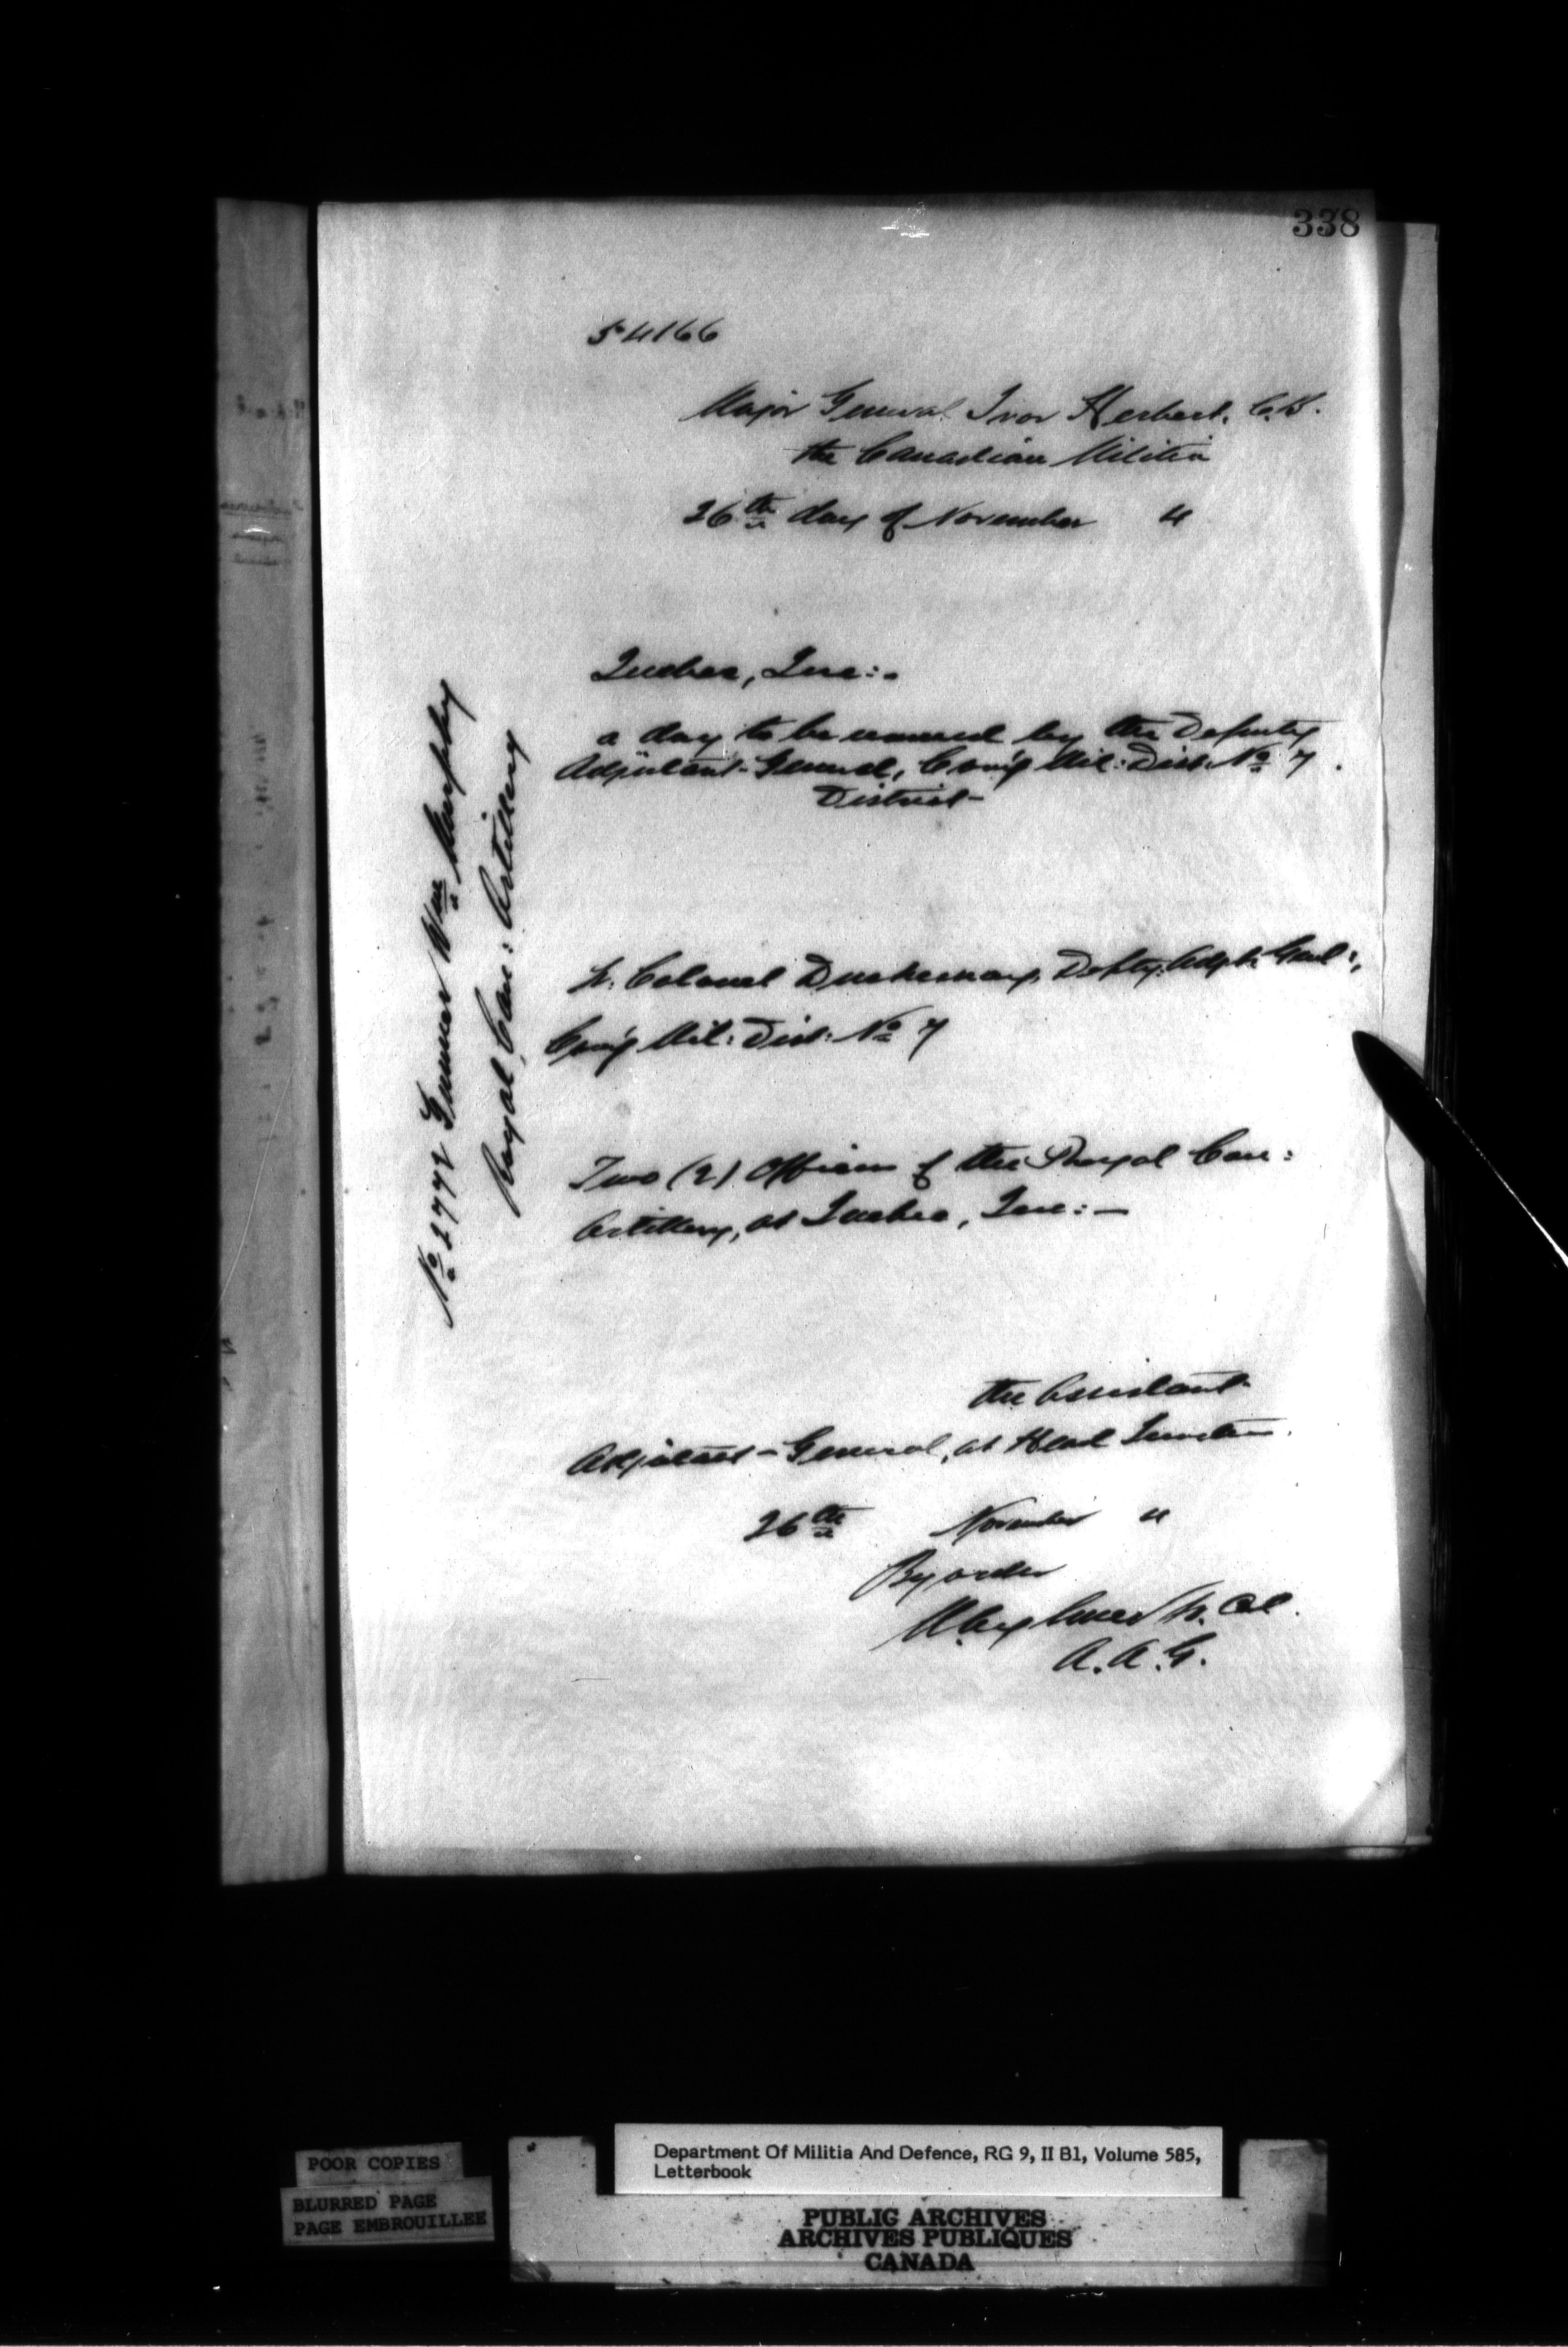 338
54166
Major General Ivor Herbert, C.B.
the Canadian Militia
26th day of November 4
Quebec, Que:-
a day to be named by the Deputy
Adjutant-General, Com'g Mil: Dist: No 7.
District-
Lt. Colonel Duchesnay, Depty. Adjt. Genl:,
Com'g Mil: Dist: No 7
Two (2) Officers of the Royal Can:
Artillery, at Quebec, Que:-
the Assistant-
Adjutant-General, at Head Quarters.
26th November 4
By order
Lt. Col.
A.A.G.
No 2772 Gunner Wm Murphy
Royal Can: Artillery
POOR COPIES
BLURRED PAGE
PAGE EMBROUILLEE
Department Of Militia And Defence, RG 9, II B1, Volume 585,
Letterbook
PUBLIC ARCHIVES
ARCHIVES PUBLIQUES
CANADA